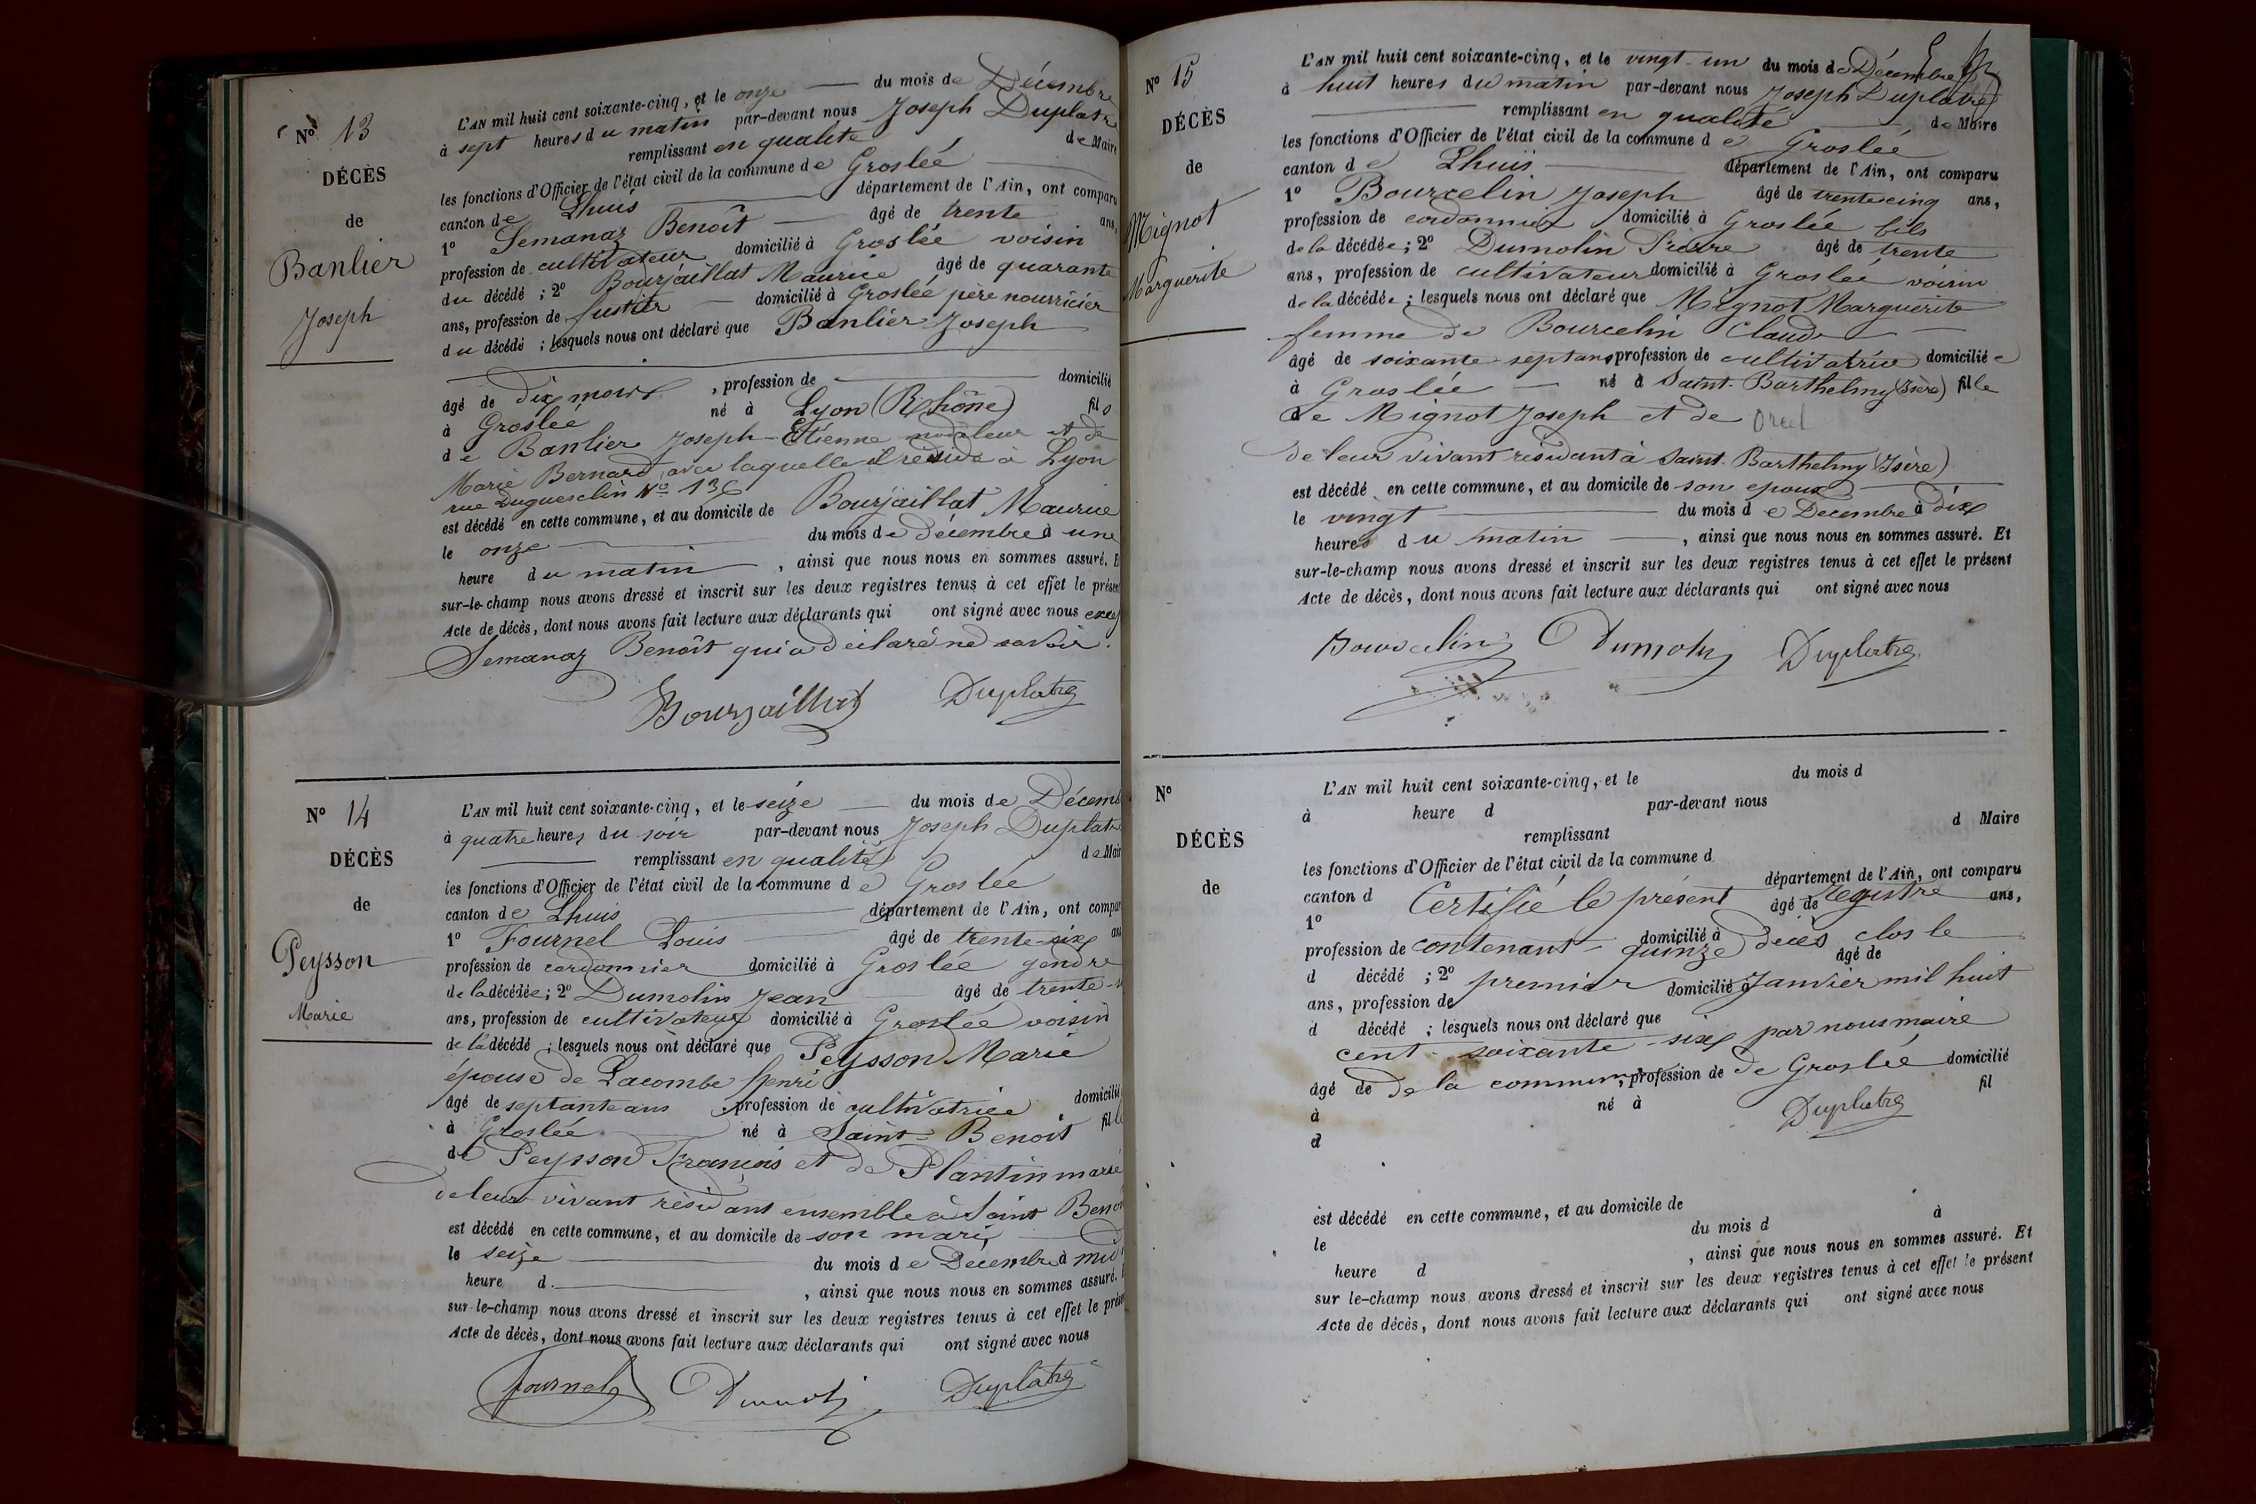 N° 13
DÉCÈS
de
Banlier
Joseph
L'AN mil huit cent soixante-cinq, et le onze du mois de Décembre
à sept heures du matin par-devant nous Joseph Duplatre
remplissant en qualité de Maire
les fonctions d'Officier de l'état civil de la commune de Groslée
canton de Lhuis département de l'Ain, ont comparu
1° Semanaz Benoît âgé de trente ans,
profession de cultivateur domicilié à Groslée voisin
du décédé ; 2° Bourjaillat Maurice âgé de quarante
ans, profession de domicilié à Groslée père nourricier
du décédé ; lesquels nous ont déclaré que Banlier Joseph
âgé de dix mois , profession de domicilié
à Groslée né à Lyon (Rhône) fils
de Banlier Joseph-Etienne modeleur et de
Marie Bernard avec laquelle il réside à Lyon
rue Duguesclin N° 136
est décédé en cette commune, et au domicile de Bourjaillat Maurice
le onze du mois de Décembre à une
heure du matin , ainsi que nous nous en sommes assuré. E
sur-le-champ nous avons dressé et inscrit sur les deux registres tenus à cet effet le présen
Acte de décès, dont nous avons fait lecture aux déclarants qui ont signé avec nous
Semanaz Benoît qui a déclaré ne savoir.
Bourjaillat Duplatre
N° 14
DÉCÈS
de
Peysson
Marie
L'AN mil huit cent soixante-cinq, et le seize du mois de Décemb
à quatre heures du soir par-devant nous Joseph Duplatre
remplissant en qualité de Mair
les fonctions d'Officier de l'état civil de la commune de Groslée
canton de Lhuis département de l'Ain, ont compar
1° Fournel Louis âgé de trente-six ans
profession de cordonnier domicilié à Groslée gendre
de la décédée ; 2° Dumolin Jean âgé de trente-
ans, profession de cultivateur domicilié à Groslée voisin
de la décédé ; lesquels nous ont déclaré que Peysson Marie
épouse de Lacombe henri
âgé de septante ans , profession de cultivatrice domicilié
à Groslée né à Saint-Benoit fille
de Peysson François et de Plantin marie
de leur vivant résidans ensemble à Saint Benoi
est décédé en cette commune, et au domicile de son mari
le seize du mois de Décembre à midi
heure d , ainsi que nous nous en sommes assuré. E
sur-le-champ nous avons dressé et inscrit sur les deux registres tenus à cet effet le prése
Acte de décès, dont nous avons fait lecture aux déclarants qui ont signé avec nous
fournel Dumolin Duplatre
N° 15
DÉCÈS
de
Mignot
Marguerite
L'AN mil huit cent soixante-cinq, et le vingt-un du mois de Décembre
à huit heures du matin par-devant nous Joseph Duplatre
remplissant en qualité de Maire
les fonctions d'Officier de l'état civil de la commune de Groslée
canton de Lhuis département de l'Ain, ont comparu
1° Bourcelin Joseph âgé de trente cinq ans,
profession de cordonnier domicilié à Groslée fils
de la décédée ; 2° Dumolin Pierre âgé de trente
ans, profession de cultivateur domicilié à Groslée voisin
de la décédée ; lesquels nous ont déclaré que Mignot Marguerite
femme de Bourcelin Claude
âgé de soixante sept ans profession de cultivatrice domiciliée
à Groslée né à Saint-Barthelmy (Isère) fille
de Mignot Joseph et de
de leur vivant résidant à Saint-Barthelmy (Isère)
est décédé en cette commune, et au domicile de son epoux
le vingt du mois de Décembre à dix
heures du matin , ainsi que nous nous en sommes assuré. Et
sur-le-champ nous avons dressé et inscrit sur les deux registres tenus à cet effet le présent
Acte de décès, dont nous avons fait lecture aux déclarants qui ont signé avec nous
Bourcelin Dumolin Duplatre
N°
DÉCÈS
de
L'AN mil huit cent soixante-cinq, et le du mois d
à heure d par-devant nous
remplissant d Maire
les fonctions d'Officier de l'état civil de la commune d
canton d département de l'Ain, ont comparu
Certifié le présent registre
1° âgé de ans,
profession de domicilié à
contenant quinze décès clos le
d décédé ; 2° âgé de
premier Janvier mil huit
ans, profession de domicilié à
d décédé ; lesquels nous ont déclaré que
cent soixante-six par nous maire
âgé de , profession de domicilié
de la commune de Groslée
à né à fil
d
Duplatre
est décédé en cette commune, et au domicile de
le du mois d à
heure d , ainsi que nous nous en sommes assuré. Et
sur le-champ nous avons dressé et inscrit sur les deux registres tenus à cet effet le présent
Acte de décès, dont nous avons fait lecture aux déclarants qui ont signé avec nous